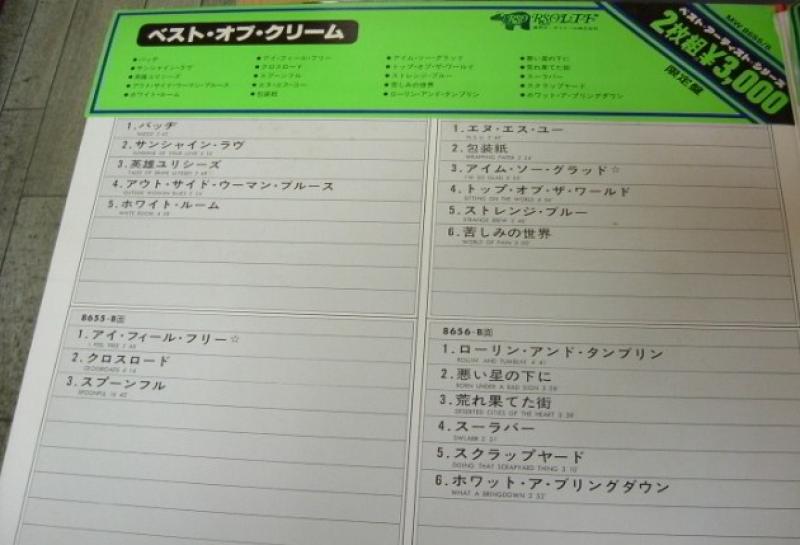 ベスト・オブ・クリーム
RSO
MW 8655/6
ベスト・アーティスト・シリーズ
2枚組¥3,000
限定盤
●バッヂ
●サンシャイン・ラヴ
●英雄ユリシーズ
●アウト・サイド・ウーマン・ブルース
●ホワイト・ルーム
●アイ・フィール・フリー
●クロスロード
●スプーンフル
●エヌ・エス・ユー
●包装紙
●アイム・ソー・グラッド
●トップ・オブ・ザ・ワールド
●ストレンジ・ブルー
●苦しみの世界
●ローリン・アンド・タンブリン
●悪い星の下に
●荒れ果てた街
●スーラバー
●スクラップヤード
●ホワット・ア・ブリングダウン
1.バッヂ
2.サンシャイン・ラヴ
3.英雄ユリシーズ
4.アウト・サイド・ウーマン・ブルース
5.ホワイト・ルーム
WHITE ROOM
8655-B面
1.アイ・フィール・フリー☆
I FEEL FREE
2.クロスロード
CROSSROADS
3.スプーンフル
SPOONFUL
1.エヌ・エス・ユー
N.S.U.
2.包装紙
WRAPPING PAPER
3.アイム・ソー・グラッド☆
I'M SO GLAD
4.トップ・オブ・ザ・ワールド
SITTING ON THE WORLD
5.ストレンジ・ブルー
STRANGE BREW
6.苦しみの世界
WORLD OF PAIN
8656-B面
1.ローリン・アンド・タンブリン
ROLLIN' AND TUMBLIN'
2.悪い星の下に
BORN UNDER A BAD SIGN
3.荒れ果てた街
DESERTED CITIES OF THE HEART
4.スーラバー
SWLABR
5.スクラップヤード
DOING THAT SCRAPYARD THING
6.ホワット・ア・ブリングダウン
WHAT A BRINGDOWN